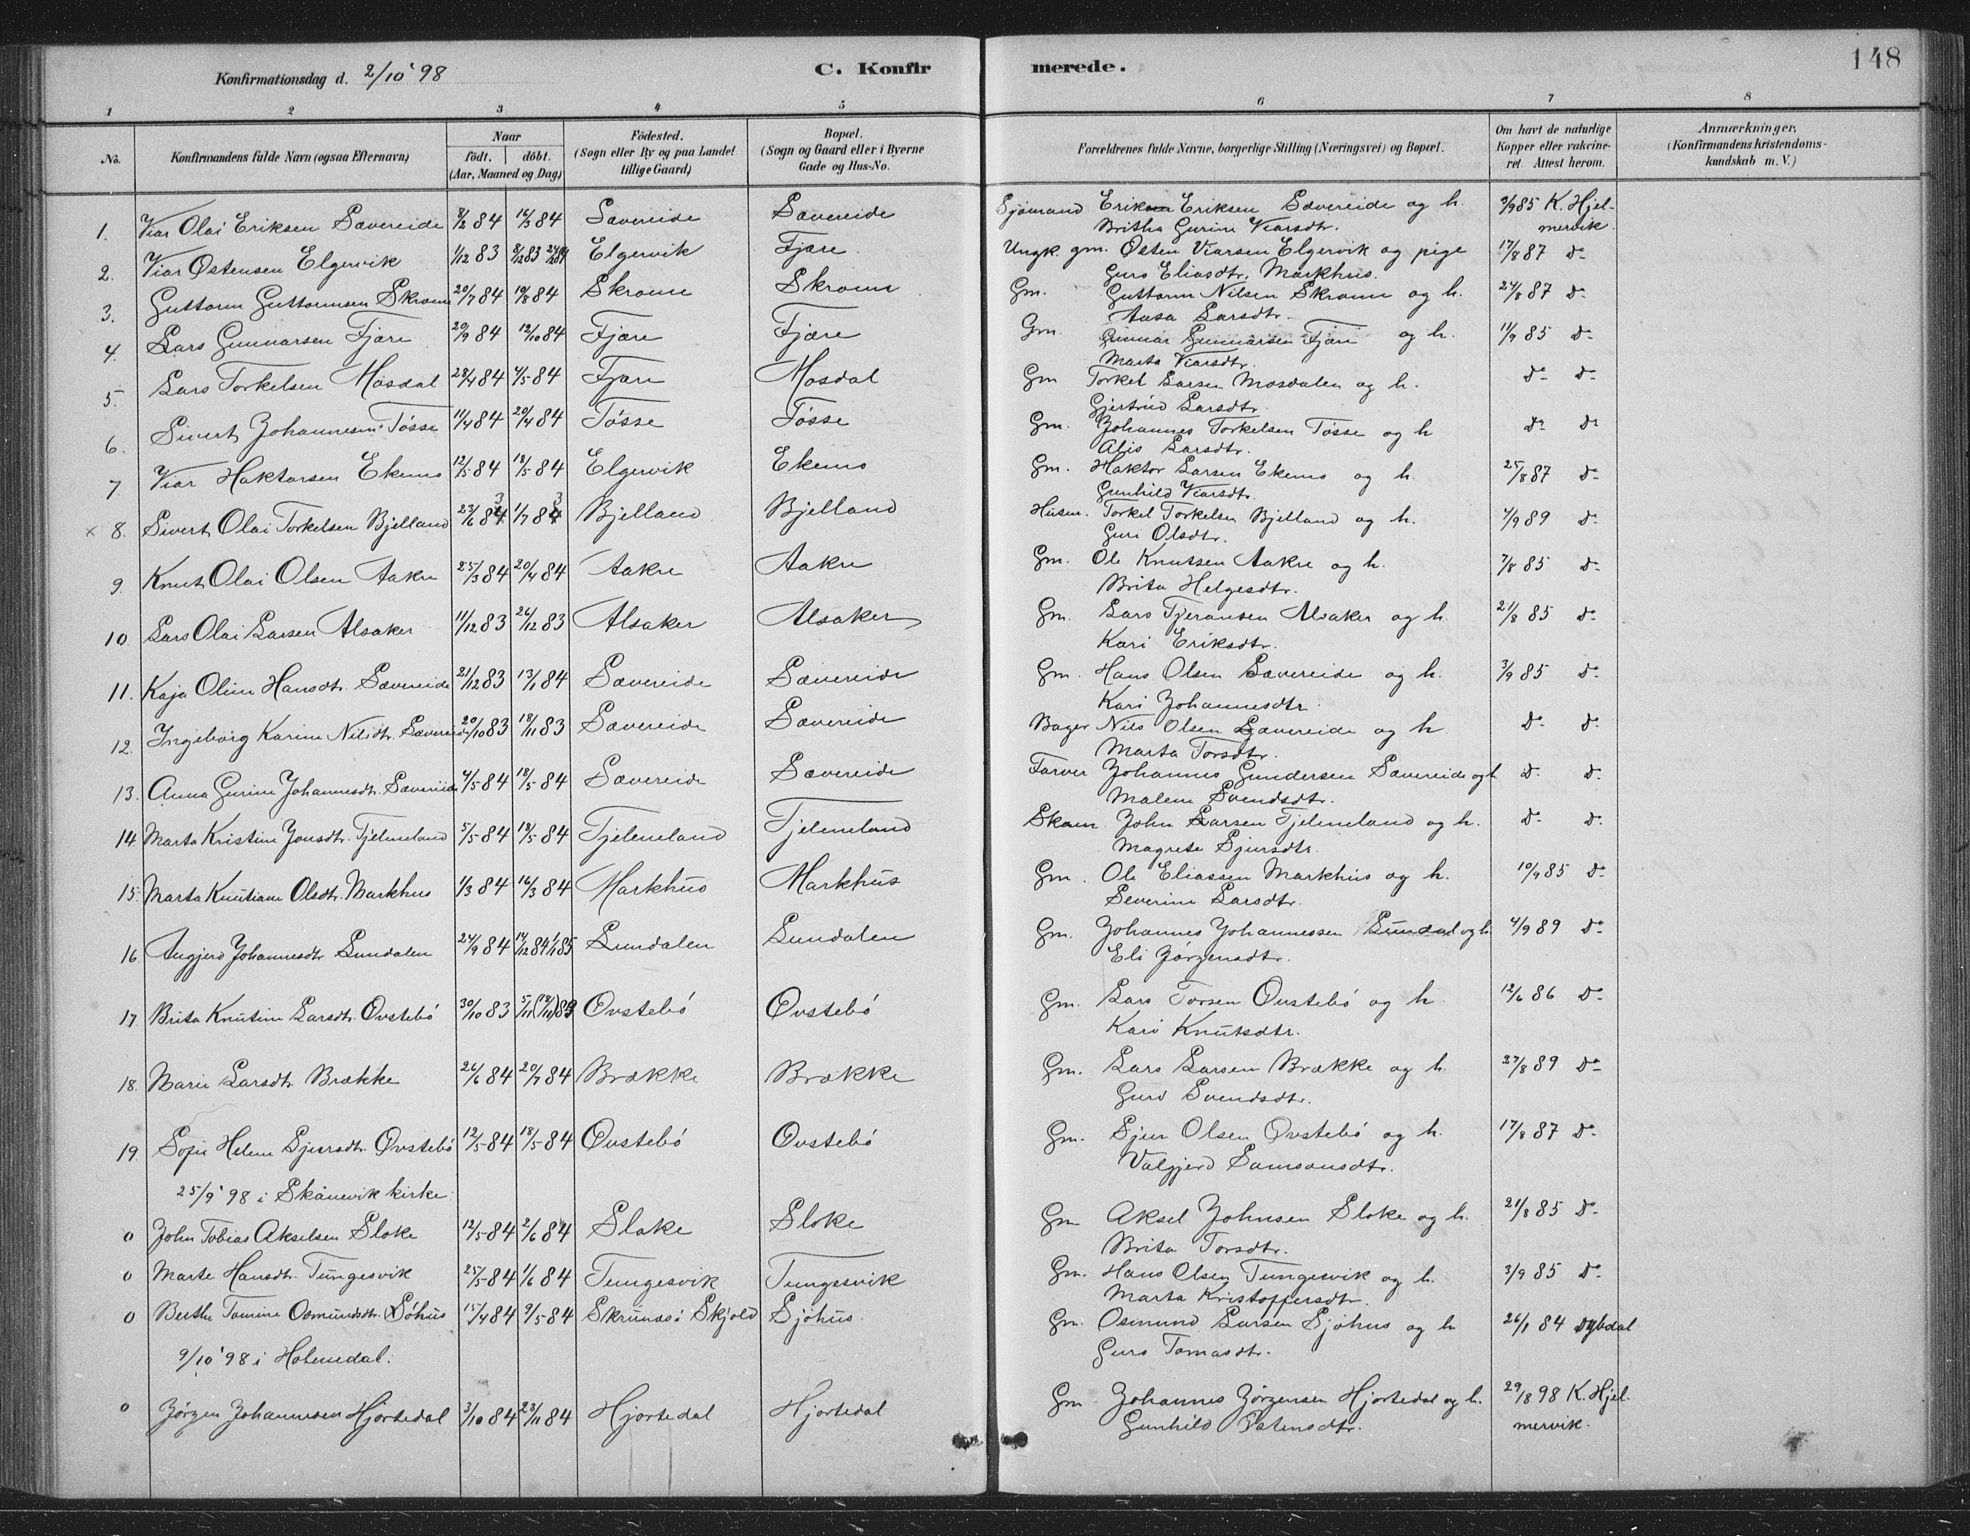 148
Konfirmationsdag d. 2/10 98 C. Konfirmerede.
1 2 3 4 5 6 7 8
No. Konfirmandens fulde Navn (ogsaa Efternavn) Naar födt. döbt. (Aar, Maaned og Dag) Födested. (Sogn eller By og paa Landet tillige Gaard) Bopæl. (Sogn og Gaard eller i Byerne Gade og Hus-No. Forældrenes fulde Navne, borgerlige Stilling (Næringsvei) og Bopæl. Om havt de naturlige Kopper eller vakcineret. Attest herom. Anmærkninger, (Konfirmandens kristendomskundskab m. V.)
1. Viar Olai Eriksen Sævereide 8/2 84 16/3 84 Sævereide Sævereide Sjømand Erik Eriksen Sævereide og h. 9/9 85 K. Hjel-
Britha Gurine Viarsdtr. mervik.
2. Viar Østensen Elgervik 1/12 83 8/12 83 Elgervik Fjære Ungk. gm. Østen Viarsen Elgervik og pige 17/8 87 do
Guro Eliasdtr. Markhus.
3. Guttorm Guttormsen Skromme 20/7 84 10/8 84 Skromme Skromme Gm. Guttorm Nilsen Skromme og h. 24/8 87 do
Aasa Larsdtr.
4. Lars Gunnarsen Fjære 20/9 84 12/10 84 Fjære Fjære Gm. Gunnar Gunnarsen Fjære og h. 11/9 85 do
Marta Viarsdtr.
5. Lars Torkelsen Mosdal 28/4 84 4/5 84 Fjære Mosdal Gm Torkel Larsen Mosdalen og h. do do
Gjertrud Larsdtr.
6. Sivert Johannesen Tøsse 11/4 84 20/4 84 Tøsse Tøsse Gm. Johannes Torkelsen Tøsse og h do do
Alis Larsdtr.
7 Viar Haktorsen Ekemo 12/5 84 18/5 84 Elgervik Ekemo Gm. Haktor Larsen Ekemo og h. 25/8 87 do
Gunhild Viarsdtr.
x 8. Sivert Olai Torkelsen Bjelland 23/6 83 1/7 83 Bjelland Bjelland Husm. Torkel Torkelsen Bjelland og h. 4/9 89 do
Guri Olsdtr.
9. Knut Olai Olsen Aakre 25/3 84 20/4 84 Aakre Aakre Gm. Ole Knutsen Aakre og h. 7/8 85 do
Brita Helgesdtr.
10. Lars Olai Larsen Alsaker 11/12 83 26/12 83 Alsaker Alsaker Gm. Lars Tjeransen Alsaker og h. 21/8 85 do
Kari Eriksdtr.
11. Kaja Oline Hansdtr. Sævereide 21/12 83 13/1 84 Sævereide Sævereide Gm. Hans Olsen Sævereide og h. 3/9 85 do
Kari Johannesdtr.
12. Ingeborg Karine Nilsdtr. Sævereide 20/10 83 18/11 83 Sævereide Sævereide Bager Nils Olsen Sævereide og h do do
Marta Torsdtr.
13. Anna Gurine Johannesdtr. Sævereide 4/5 84 18/5 84 Sævereide Sævereide Farver Johannes Gundersen Sævereide og h do do
Malene Svendsdtr.
14 Marta Kristine Jonsdtr. Tjelmeland 5/5 84 18/5 84 Tjelmeland Tjelmeland Skom John Larsen Tjelmeland og h. do do
Magrete Sjursdtr.
15. Marta Knutiane Olsdtr. Markhus 1/3 84 16/3 84 Markhus Markhus Gm. Ole Eliassen Markhus og h. 10/9 85 do
Severine Larsdtr.
16. Angjerd Johannesdtr Sundalen 24/9 84 14/12 84 1/1 85 Sundalen Sundalen Gm. Johannes Johannessen Sundal og h. 4/9 89 do
Eli Jørgensdtr.
17. Brita Knutine Larsdtr. Øvstebö 30/10 83 5/11 (18/11) 83 Øvstebö Øvstebö Gm. Lars Torsen Øvstebö og h 12/6 86 do
Kari Knutsdtr.
18. Marie Larsdtr Brække 26/6 84 20/7 84 Brække Brække Gm. Lars Larsen Brække og h. 27/8 89 do
Guro Svendsdtr.
19. Sofie Helene Sjursdtr. Øvstebö 12/5 84 18/5 84 Øvstebö Øvstebö Gm. Sjur Olsen Øvstebö og h. 17/8 87 do
Valgjerd Samsonsdtr.
25/9 98 i Skånevik kirke.
0 John Tobias Akselsen Sloke 12/5 84 2/6 84 Sloke Sloke Gm Aksel Johnsen Sloke og h. 21/8 85 do
Brita Torsdtr.
0 Marte Hansdtr. Tungesvik 25/5 84 1/6 84 Tungesvik Tungesvik Gm. Hans Olsen Tungesvik og h. 3/9 85 do
Marta Kristoffersdtr.
0 Berthe Tomine Osmundsdtr. Sjöhus 15/4 84 9/5 84 Skjold Sjöhus. Gm. Osmund Larsen Sjöhus og h 26/1 84 Dybdal
Guro Tomasdtr.
9/10 98 i Holmedal.
0 Jørgen Johannesen Hjortedal 3/10 84 23/11 84 Hjortedal Hjortedal Gm Johannes Jørgensen Hjortedal og h. 29/8 98 K. Hjel-
Gunhild Østensdtr. mervik.